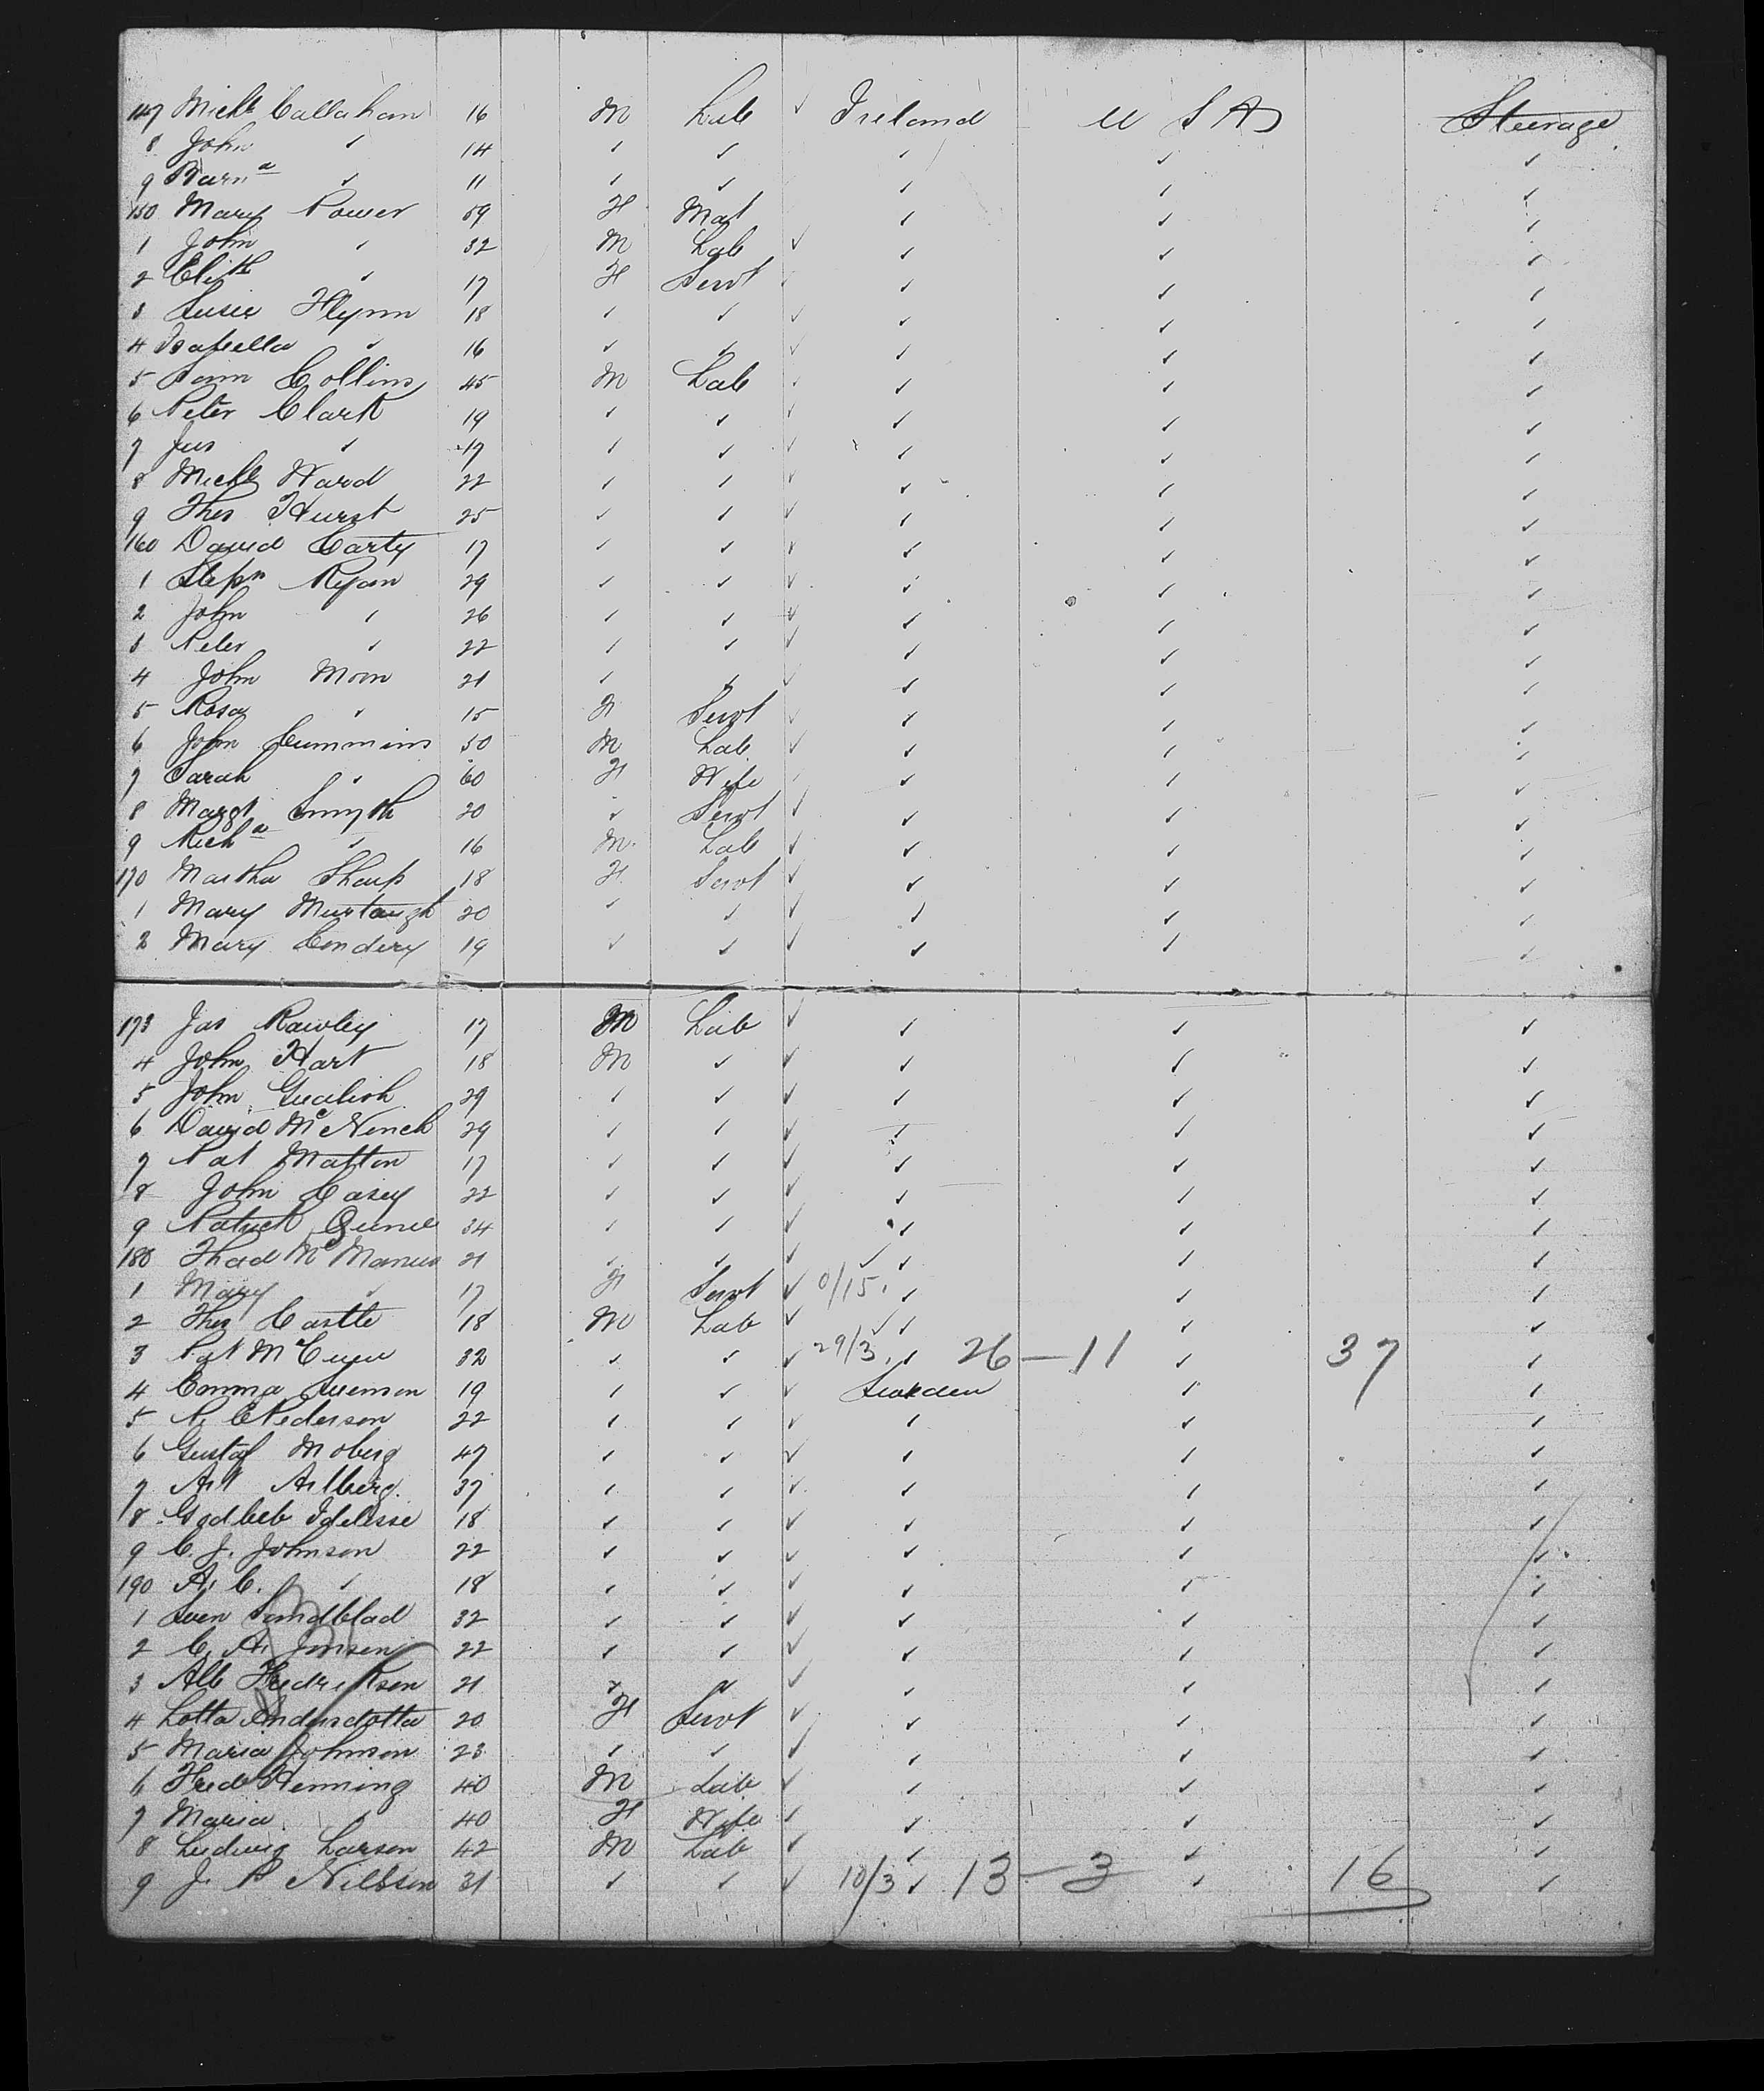 147 Michl Callahan 16 M Lab ✓ Ireland U S A Steerage
8 John ✓ 14 ✓ ✓ ✓ ✓ ✓
9 Barnd ✓ 11 ✓ ✓ ✓ ✓ ✓
150 Mary Power 59 F Mat ✓ ✓ ✓
1 John ✓ 32 M Lab ✓ ✓ ✓ ✓
2 Elizth ✓ 17 F Servt ✓ ✓ ✓
3 Susie Flynn 18 ✓ ✓ ✓ ✓ ✓ ✓
4 Isabella ✓ 16 ✓ ✓ ✓ ✓ ✓ ✓
5 Collins 45 M Lab ✓ ✓ ✓ ✓
6 Peter Clark 19 ✓ ✓ ✓ ✓ ✓ ✓
7 Jas ✓ 17 ✓ ✓ ✓ ✓ ✓ ✓
8 Michl Ward 22 ✓ ✓ ✓ ✓ ✓ ✓
9 Thos Hurst 25 ✓ ✓ ✓ ✓ ✓ ✓
160 David Carty 17 ✓ ✓ ✓ ✓ ✓ ✓
1 Stepn Ryan 29 ✓ ✓ ✓ ✓ ✓ ✓
2 John ✓ 26 ✓ ✓ ✓ ✓ ✓ ✓
3 Peter ✓ 22 ✓ ✓ ✓ ✓ ✓ ✓
4 John Moon 21 ✓ ✓ ✓ ✓ ✓ ✓
5 Rosa ✓ 15 F Servt ✓ ✓ ✓ ✓
6 John Cummins 50 M Lab ✓ ✓ ✓ ✓
7 Sarah ✓ 60 F Wife ✓ ✓ ✓ ✓
8 Margt Smyth 20 ✓ Servt ✓ ✓ ✓ ✓
9 Richd ✓ 16 M Lab ✓ ✓ ✓ ✓
170 Martha Sharp 18 F Servt ✓ ✓ ✓ ✓
1 Mary Murtaugh 20 ✓ ✓ ✓ ✓ ✓ ✓
2 Mary Condery 19 ✓ ✓ ✓ ✓ ✓ ✓
173 Jas Rawley 17 M Lab ✓ ✓ ✓ ✓
4 John Hart 18 M ✓ ✓ ✓ ✓ ✓
5 John 29 ✓ ✓ ✓ ✓ ✓ ✓
6 David McNinch 29 ✓ ✓ ✓ ✓ ✓ ✓
7 Pat Matton 17 ✓ ✓ ✓ ✓ ✓ ✓
8 John Casey 22 ✓ ✓ ✓ ✓ ✓ ✓
9 Patrick 34 ✓ ✓ ✓ ✓ ✓ ✓
180 Thad McManus 21 ✓ ✓ ✓ ✓ ✓ ✓ ✓
1 Mary ✓ 17 F Servt ✓ 0/15 ✓ ✓ ✓
2 Thos Castle 18 M Lab ✓ ✓ ✓ ✓ ✓
3 Pat 32 ✓ ✓ ✓ 29/3 ✓ 26 — 11 ✓ 37 ✓
4 Emma Svenson 19 ✓ ✓ ✓ Sweden ✓ ✓
5 Pederson 22 ✓ ✓ ✓ ✓ ✓ ✓
6 Gustaf Moberg 47 ✓ ✓ ✓ ✓ ✓ ✓
7 Arlberg 37 ✓ ✓ ✓ ✓ ✓ ✓
8 Godlieb 18 ✓ ✓ ✓ ✓ ✓ ✓
9 C. J. Johnson 22 ✓ ✓ ✓ ✓ ✓ ✓
190 A. C. ✓ 18 ✓ ✓ ✓ ✓ ✓ ✓
1 Sven Sandblad 32 ✓ ✓ ✓ ✓ ✓ ✓
2 C. A. Jonsen 22 ✓ ✓ ✓ ✓ ✓ ✓
3 Alb Fredrikson 21 ✓ ✓ ✓ ✓ ✓ ✓
4 Lotta Andersdotta 20 F Servt ✓ ✓ ✓ ✓
5 Maria Johnson 23 ✓ ✓ ✓ ✓ ✓ ✓
6 Fred Henning 40 M Lab ✓ ✓ ✓ ✓
7 Maria ✓ 40 F Wife ✓ ✓ ✓ ✓
8 Ludwig Larson 42 M Lab ✓ ✓ ✓ ✓
9 J. P Nilsson 31 ✓ ✓ ✓ 10/3 ✓ 13 — 3 ✓ 16 ✓